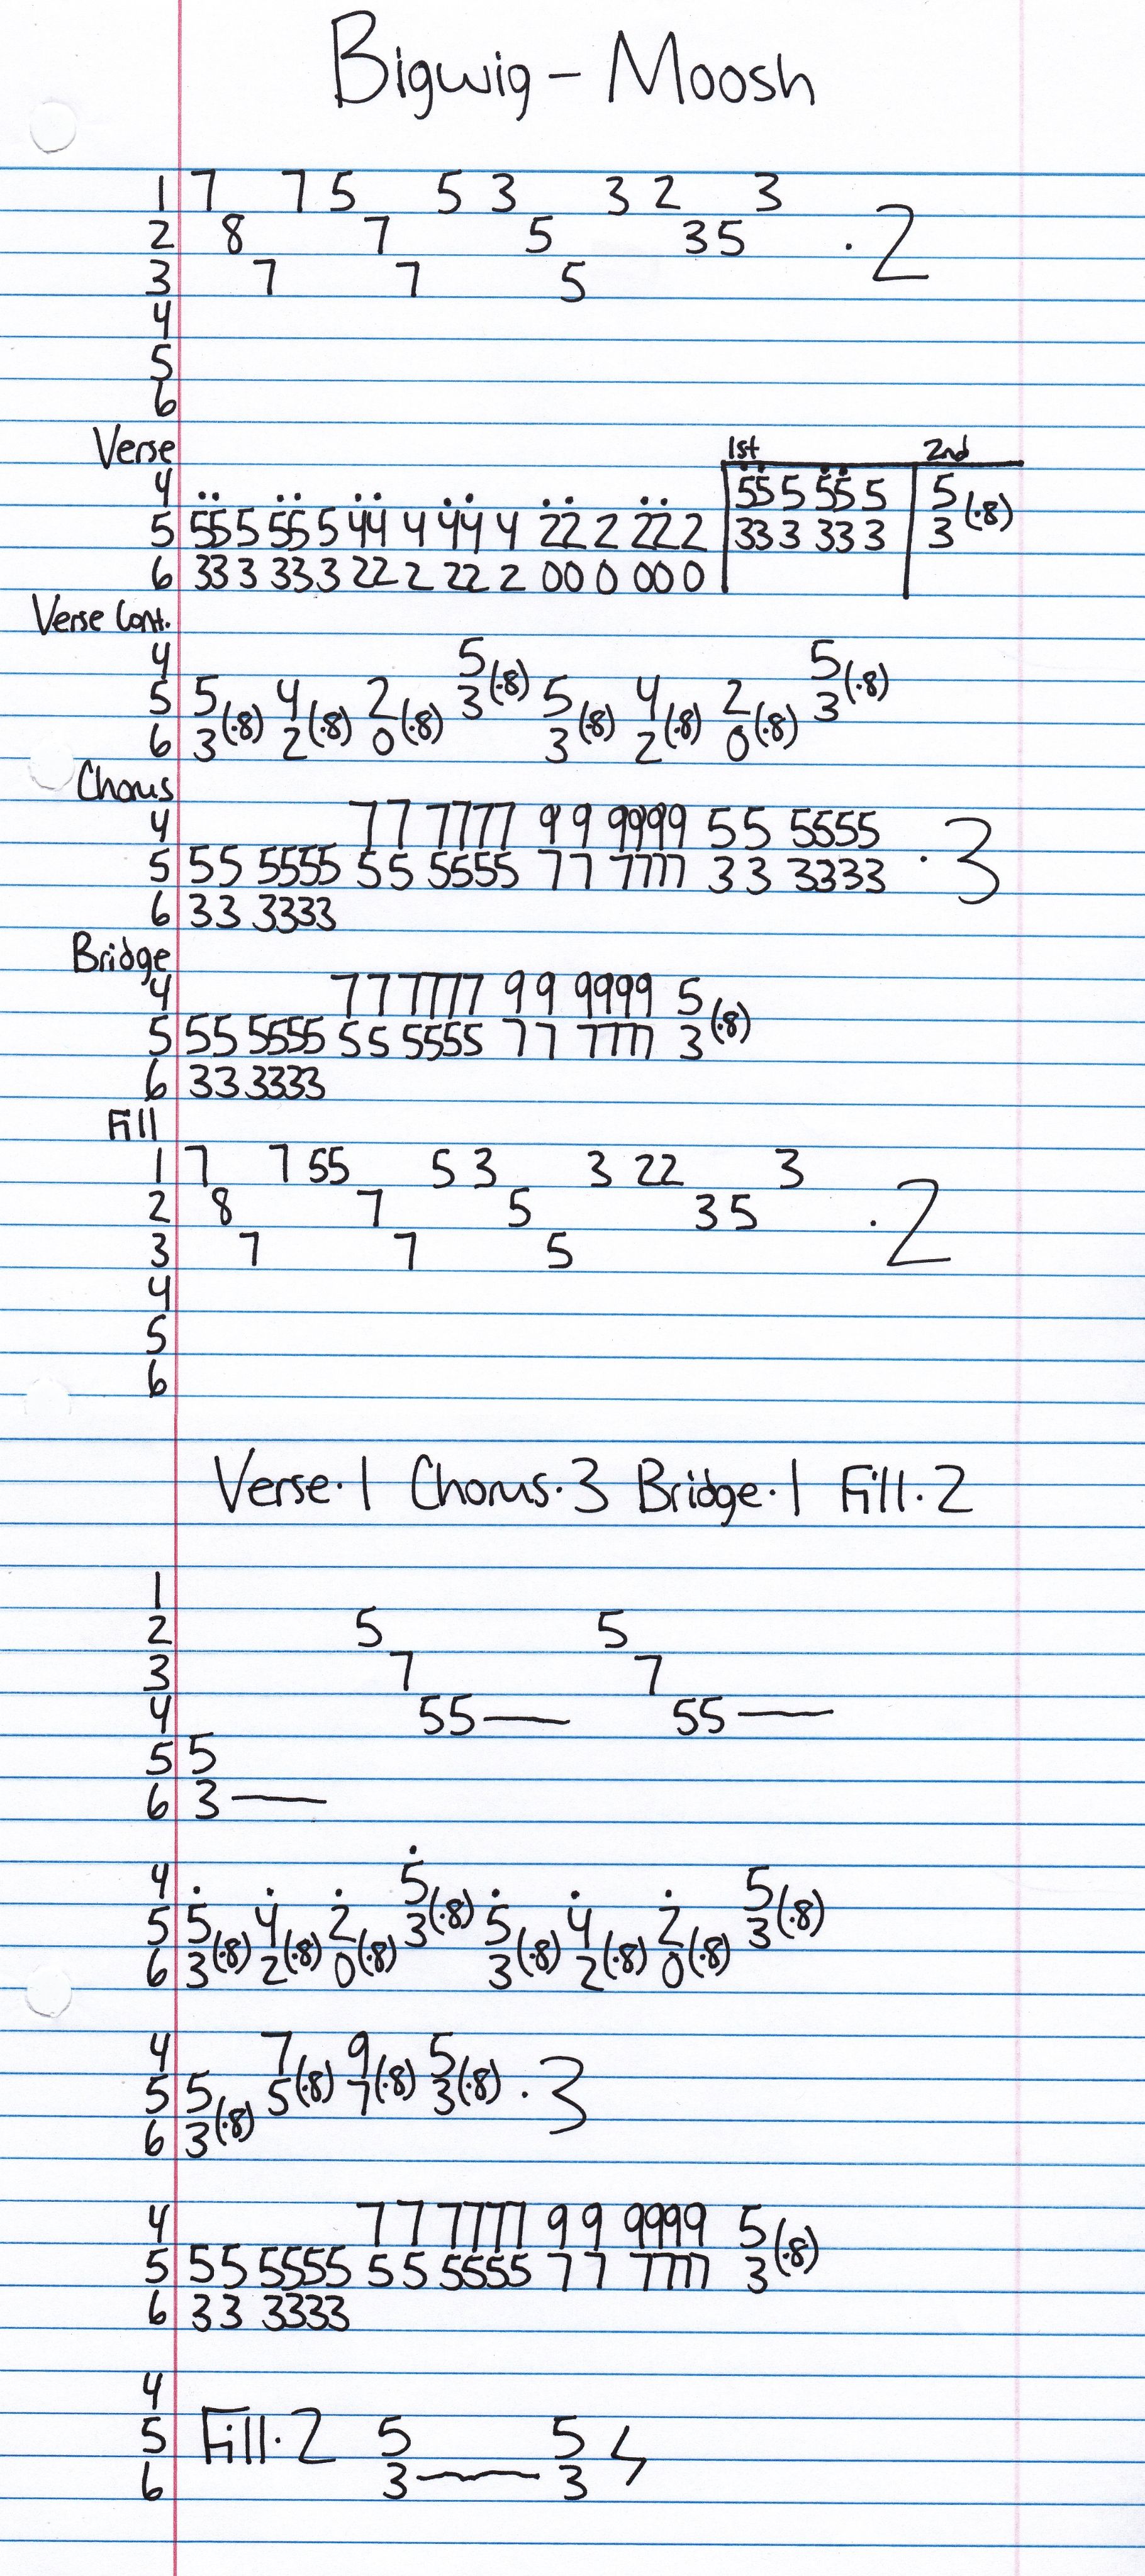 Bigwig - Moosh
1 7 7 5 5 3 3 2 3
2 8 7 5 3 5 ·2
3 7 7 5
4
5
6
Verse 1st 2nd
4 55 5 55 5 5 (·8)
5 55 5 55 5 44 4 44 4 22 2 22 2 33 3 33 3 3
6 33 3 33 3 22 2 22 2 00 0 00 0
Verse Cont.
4 5 5
5 5 4 2 3 (·8) 5 4 2 3 (·8)
6 3 (·8) 2 (·8) 0 (·8) 3 (·8) 2 (·8) 0 (·8)
Chorus
4 7 7 7777 9 9 9999 5 5 5555
5 5 5 5555 5 5 5555 7 7 7777 3 3 3333 ·3
6 3 3 3333
Bridge
4 7 7 7777 9 9 9999 5
5 5 5 5555 5 5 5555 7 7 7777 3 (·8)
6 3 3 3333
Fill
1 7 7 55 5 3 3 22 3
2 8 7 5 3 5 ·2
3 7 7 5
4
5
6
Verse·1 Chorus·3 Bridge·1 Fill·2
1
2 5 5
3 7 7
4 55— 55—
5 5
6 3—
4 5 5
5 5 4 2 3 (·8) 5 4 2 3 (·8)
6 3 (·8) 2 (·8) 0 (·8) 3 (·8) 2 (·8) 0 (·8)
4 7 9 5
5 5 5 (·8) 7 (·8) 3 (·8) ·3
6 3 (·8)
4 7 7 7777 9 9 9999 5
5 5 5 5555 5 5 5555 7 7 7777 3 (·8)
6 3 3 3333
4
5 Fill·2 5 5
6 3— 3